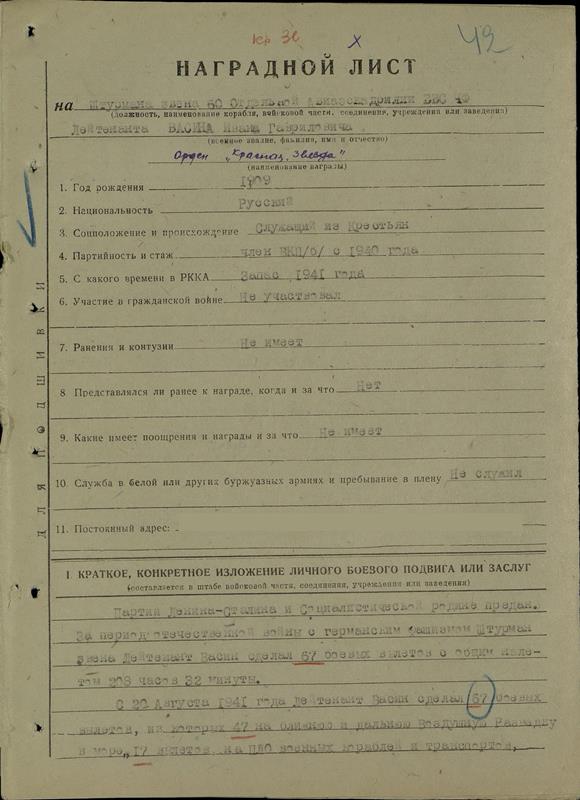 Кр Зв
х
42
НАГРАДНОЙ ЛИСТ
на Штурмана звена 60 Отдельной Авиаэскадрилии ВВС ЧФ
(должность, наименование корабля, войсковой части, соединения, учреждения или заведения)
Лейтенанта ВАСИНА Ивана Гавриловича.
(военное звание, фамилия, имя и отчество)
Орден „Красная Звезда"
(наименование награды)
1. Год рождения 1909
2. Национальность Русский
3. Соцположение и происхождение Служащий из Крестьян
4. Партийность и стаж член ВКП/б/ с 1940 года
5. С какого времени в РККА Запас 1941 года
6. Участие в гражданской войне Не участвовал
7. Ранения и контузии Не имеет
8 Представлялся ли ранее к награде, когда и за что Нет
9. Какие имеет поощрения и награды и за что Не имеет
10. Служба в белой или других буржуазных армиях и пребывание в плену Не служил
11. Постоянный адрес:
ДЛЯ ПОДШИВКИ
I. КРАТКОЕ, КОНКРЕТНОЕ ИЗЛОЖЕНИЕ ЛИЧНОГО БОЕВОГО ПОДВИГА ИЛИ ЗАСЛУГ
(составляется в штабе войсковой части, соединения, учреждения или заведения)
Партии Ленина-Сталина и Социалистической родине предан.
За период отечественной войны с германским фашизмом Штурман
звена Лейтенант Васин сделал 67 боевых вылетов с общим нале-
том 208 часов 32 минуты.
С 22 Августа 1941 года Лейтенант Васин сделал 67 боевых
вылетов, из которых 47 на ближнюю и дальнюю Воздушную Разведку
в море, 17 вылетов на ПЛО военных кораблей и транспортов,